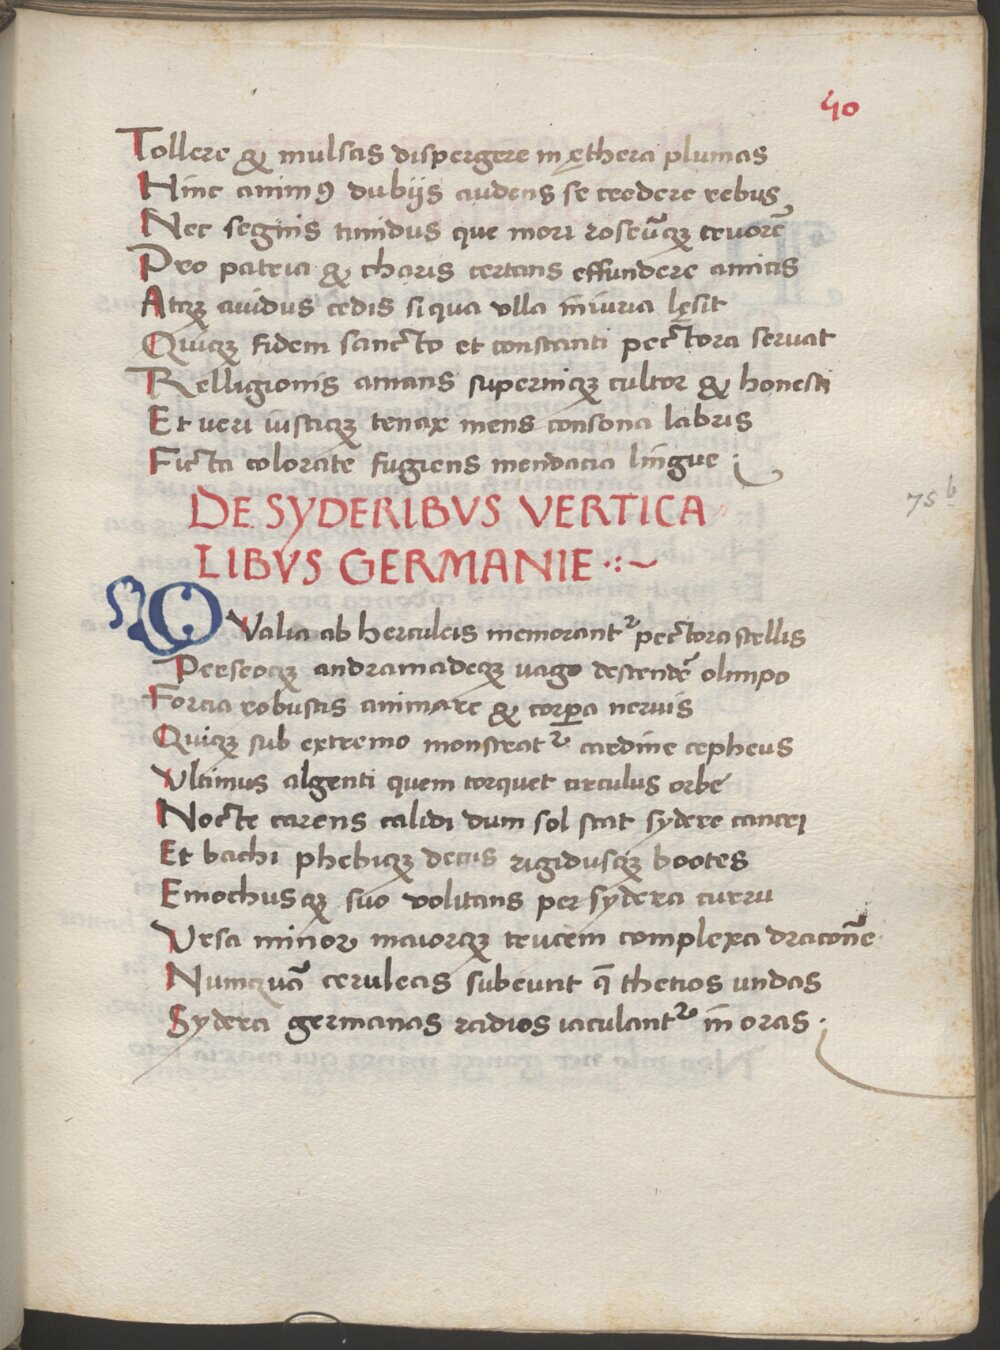 40
Tollere & mulsas dispergere in ęthera plumas
Hinc animꝰ dubijs audens se credere rebus
Nec segnis timidus que mori roseũqꝫ cruorẽ
Pro patria & charis certans effundere amicis
Atqꝫ auidus cedis si qua ulla iniuria lęsit
Quiqꝫ fidem sancto et constanti pectora seruat
Relligionis amans superniqꝫ cultor & honesti
Et ueri iusticiqꝫ tenax mens consona labris
Ficta colorate fugiens mendacia lingue
DE SYDERIBVS VERTICA
LIBVS GERMANIE
QValia ab herculeis memorantᷣ pectora stellis
Perseoqꝫ andramadeqꝫ uago descendẽ olimpo
Forcia robustis animare & corꝑa neruis
Quiqꝫ sub extremo monstratᷣ cardine cepheus
Vltimus algenti quem torquet circulus orbe
Nocte carens calidi dum sol stat sydere cancri
Et bachi phebiqꝫ decus rigidusqꝫ bootes
Eniochusqꝫ suo volitans per sydera curru
Vrsa minor maiorqꝫ trucem complexa draconẽ
Numquã ceruleas subeunt q̃ thetios undas
Sydera germanas radios iaculantᷣ in oras
75 b